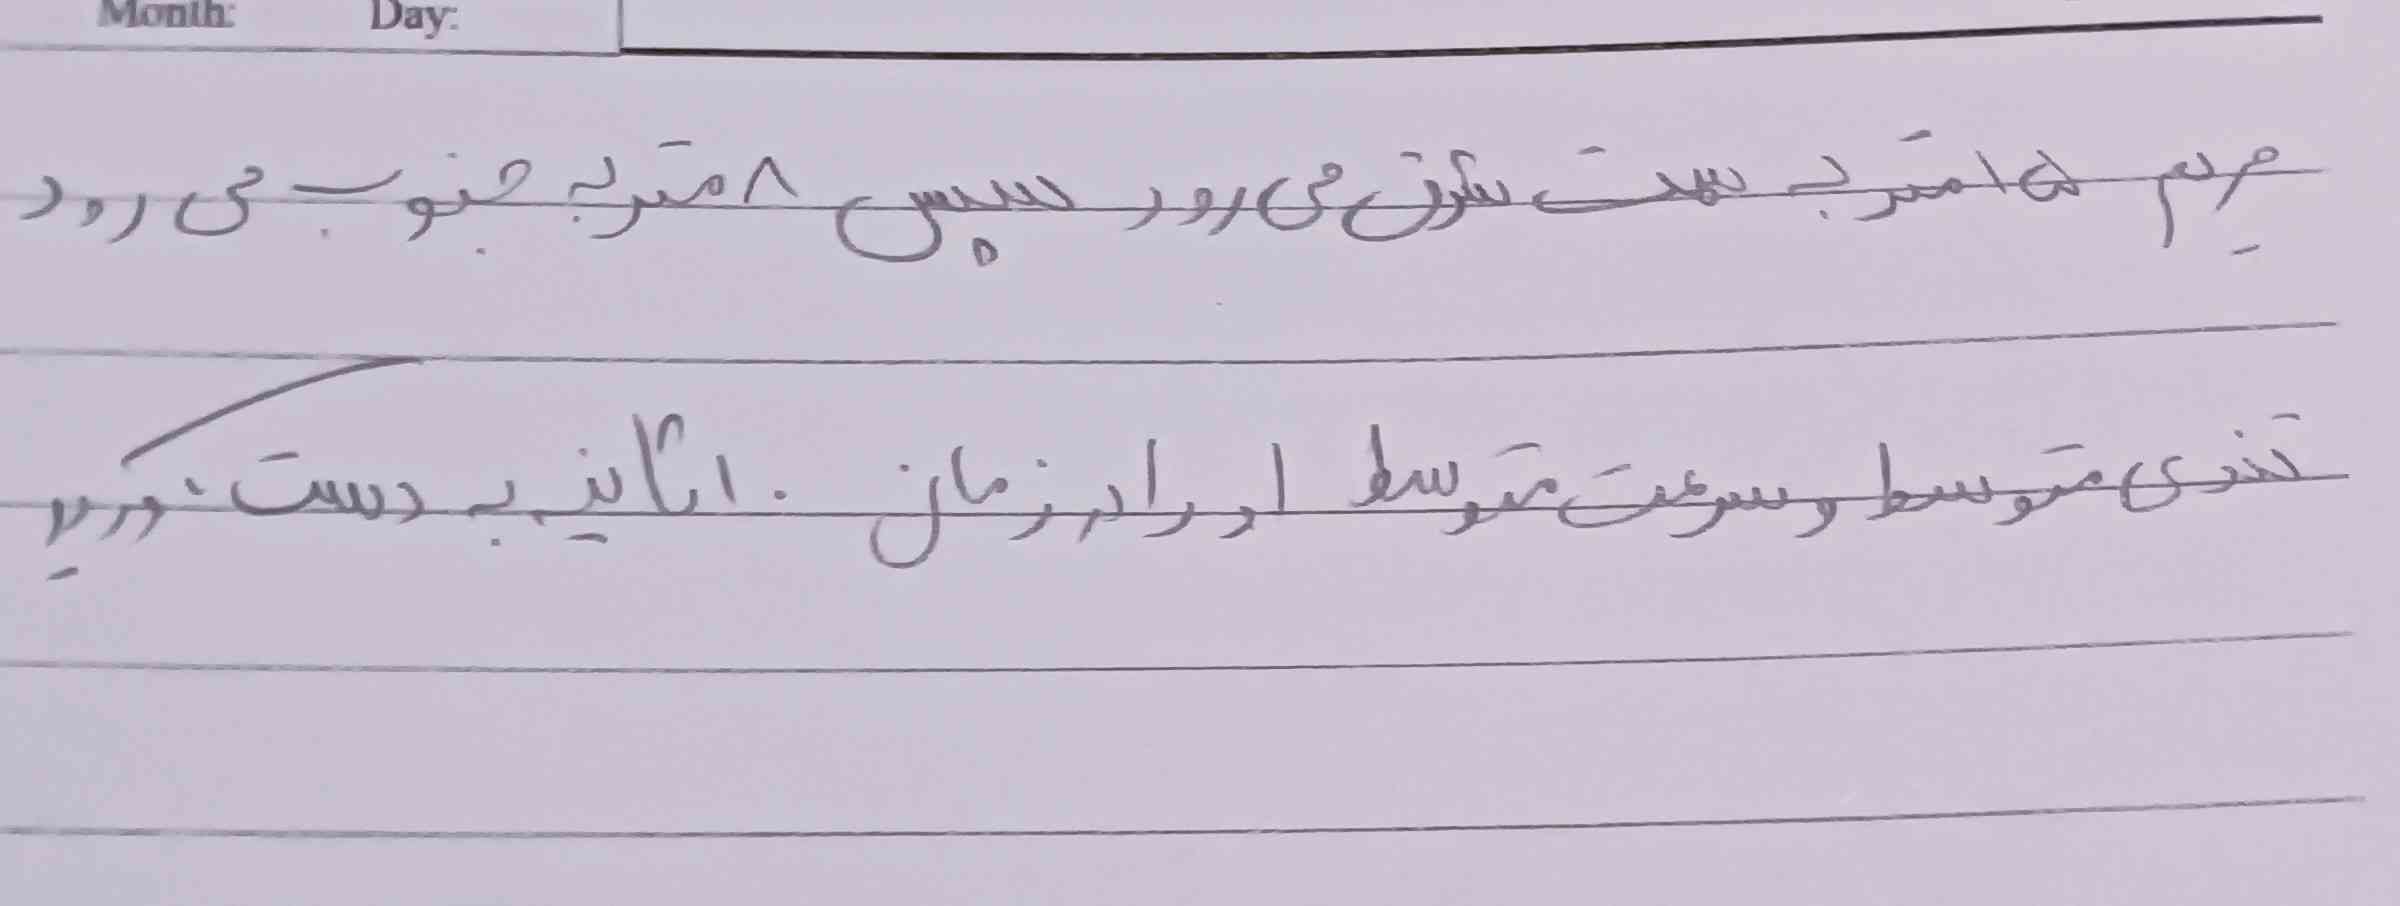 Month: Day:
مریم ۱۵ متر به سمت شرق می رود سپس ۸ متر به جنوب می رود
تندی متوسط و سرعت متوسط او را در زمان ۱۰ ثانیه به دست آورید